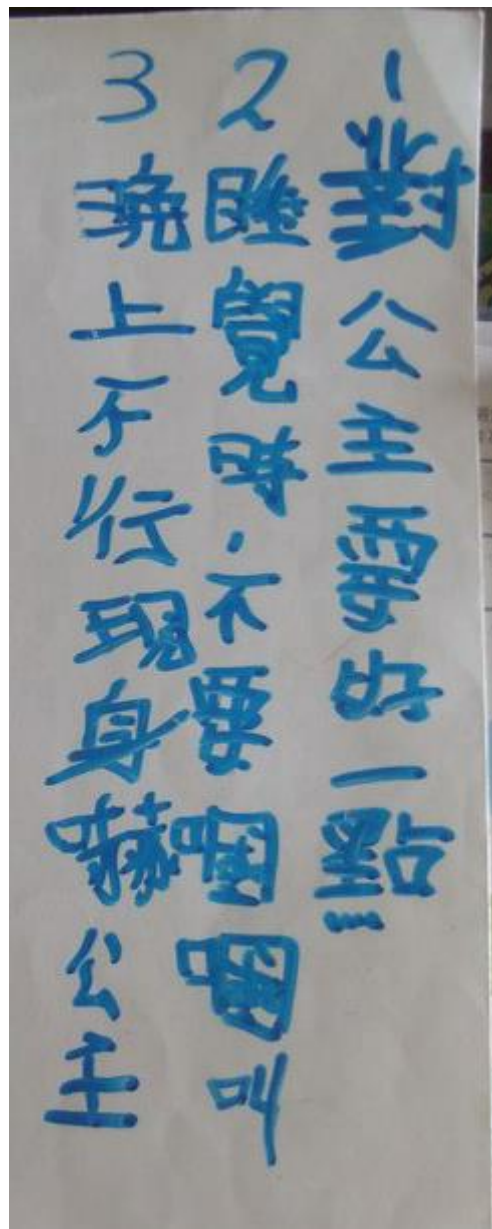 1對公主要好一點
2睡覺時,不要嘓嘓叫
3晚上不行現身嚇公主